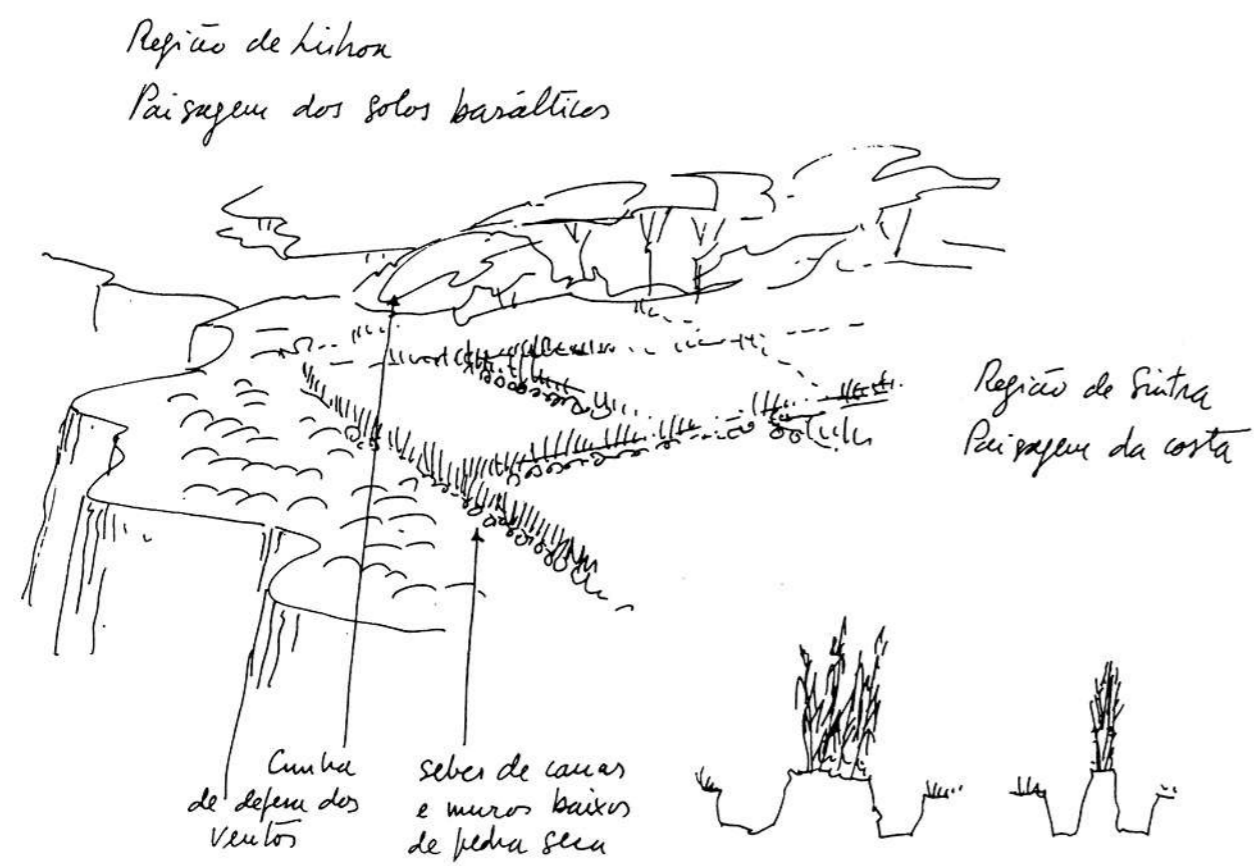 Região de Lisboa
Paisagem dos solos basálticos
Região de Sintra
Paisagem da costa
Cunha
de defesa dos
ventos
sebes de canas
e muros baixos
de pedra seca